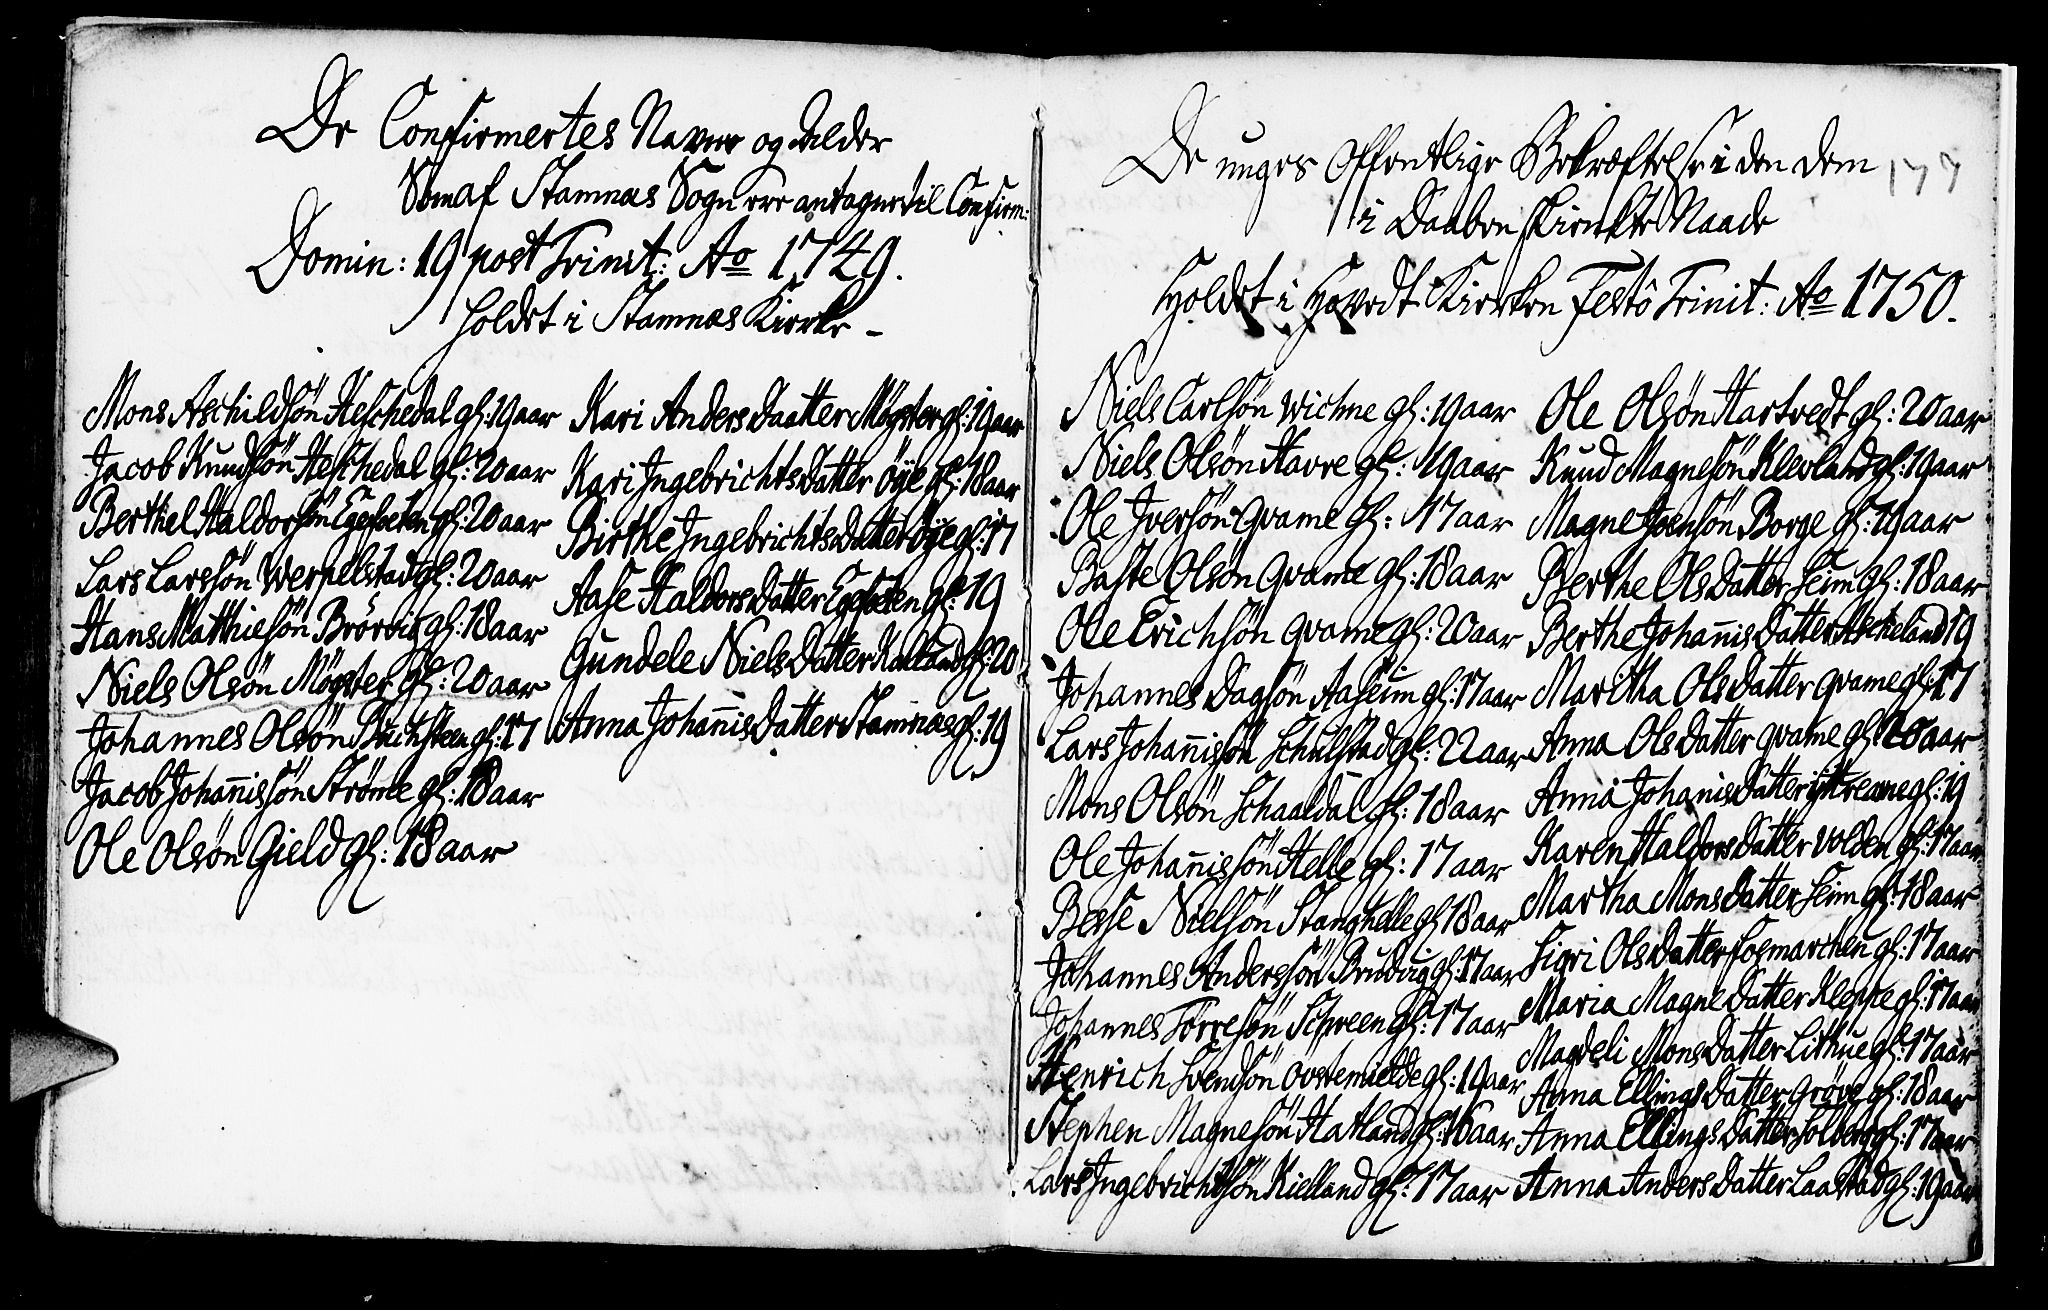 De Confirmertes Navne og Alder
Som af Stamnæs Sogn ere antagne til Confirm:
Domin: 19 post Trinit: Ao 1749.
holdet i Stamnæs Kierke -
Mons Aschildsön Heschedal gl: 19 aar
Jacob Knudsön Heschedal gl: 20 aar
Berthel Haldorsön Egesæten gl: 20 aar
Lars Larssön Wernelstad gl: 20 aar
Hans Matthiesön Brörvig gl: 18 aar
Niels Olsön Mögster gl: 20 aar
Johannes Olsön Buchsteen gl: 17
Jacob Johannissön Strömme gl: 18 aar
Ole Olsön Gield gl: 18 aar
Kari Anders Daatter Mögster gl: 19 aar
Kari Ingebrichts Datter öye gl: 18 aar
Birthe Ingebrichts Datter öye gl: 17
Aase Haldors Datter Egesæten gl: 19
Gundele Niels Datter Kalland gl: 20
Anna Johannis Datter Stamnæs gl: 19
177
De unges Offentlige Bekræftelse i den dem
i Daaben skienkte Naade
Holdet i Hovedt Kierken Festo Trinit: Ao 1750.
Niels Carlsön Wichne gl: 19 aar
Niels Olsön Havre gl: 19 aar
Ole Iversön Qvame gl: 17 aar
Baste Olsön Qvame gl: 18 aar
Ole Erichsön Qvame gl: 20 aar
Johannes Dagsön Aaseim gl: 17 aar
Lars Johannissön Schulstad gl: 22 aar
Mons Olsön Schaaldal gl: 18 aar
Ole Johannissön Helle gl: 17 aar
Besse Nielsön Stanghelle gl 18 aar
Johannes Anderssön Bruvig gl: 17 aar
Johannes Torresön Schreen gl: 17 aar
Henrich Svendsön Ovstemielde gl: 19 aar
Stephen Magnesön Hatland gl: 16 aar
Lars Ingebrichtsön Kielland gl: 17 aar
Ole Olsön Hartvedt gl: 20 aar
Knud Magnesön Klevland gl: 19 aar
Magne Joensön Borge gl: 19 aar
Berthe Ols Datter Seim gl: 18 aar
Berthe Johannis Datter Ascheland 19
Maritha Ols Datter Qvame gl: 17
Anna Ols Datter Qvame gl: 20 aar
Anna Johannis Datter ijttrearne gl: 19
Karen Haldors Datter Volden gl: 17 aar
Martha Mons Datter Seim gl: 18 aar
Sigri Ols Datter Fosmarchen gl: 17 aar
Maria Magne Datter Kleppe gl: 17 aar
Magdeli Mons Datter Lithue gl: 17 aar
Anna Ellings Datter Gröve gl: 18 aar
Anna Ellings Datter Solberg gl: 17 aar
Anna Anders Datter Laastad gl: 19 aar